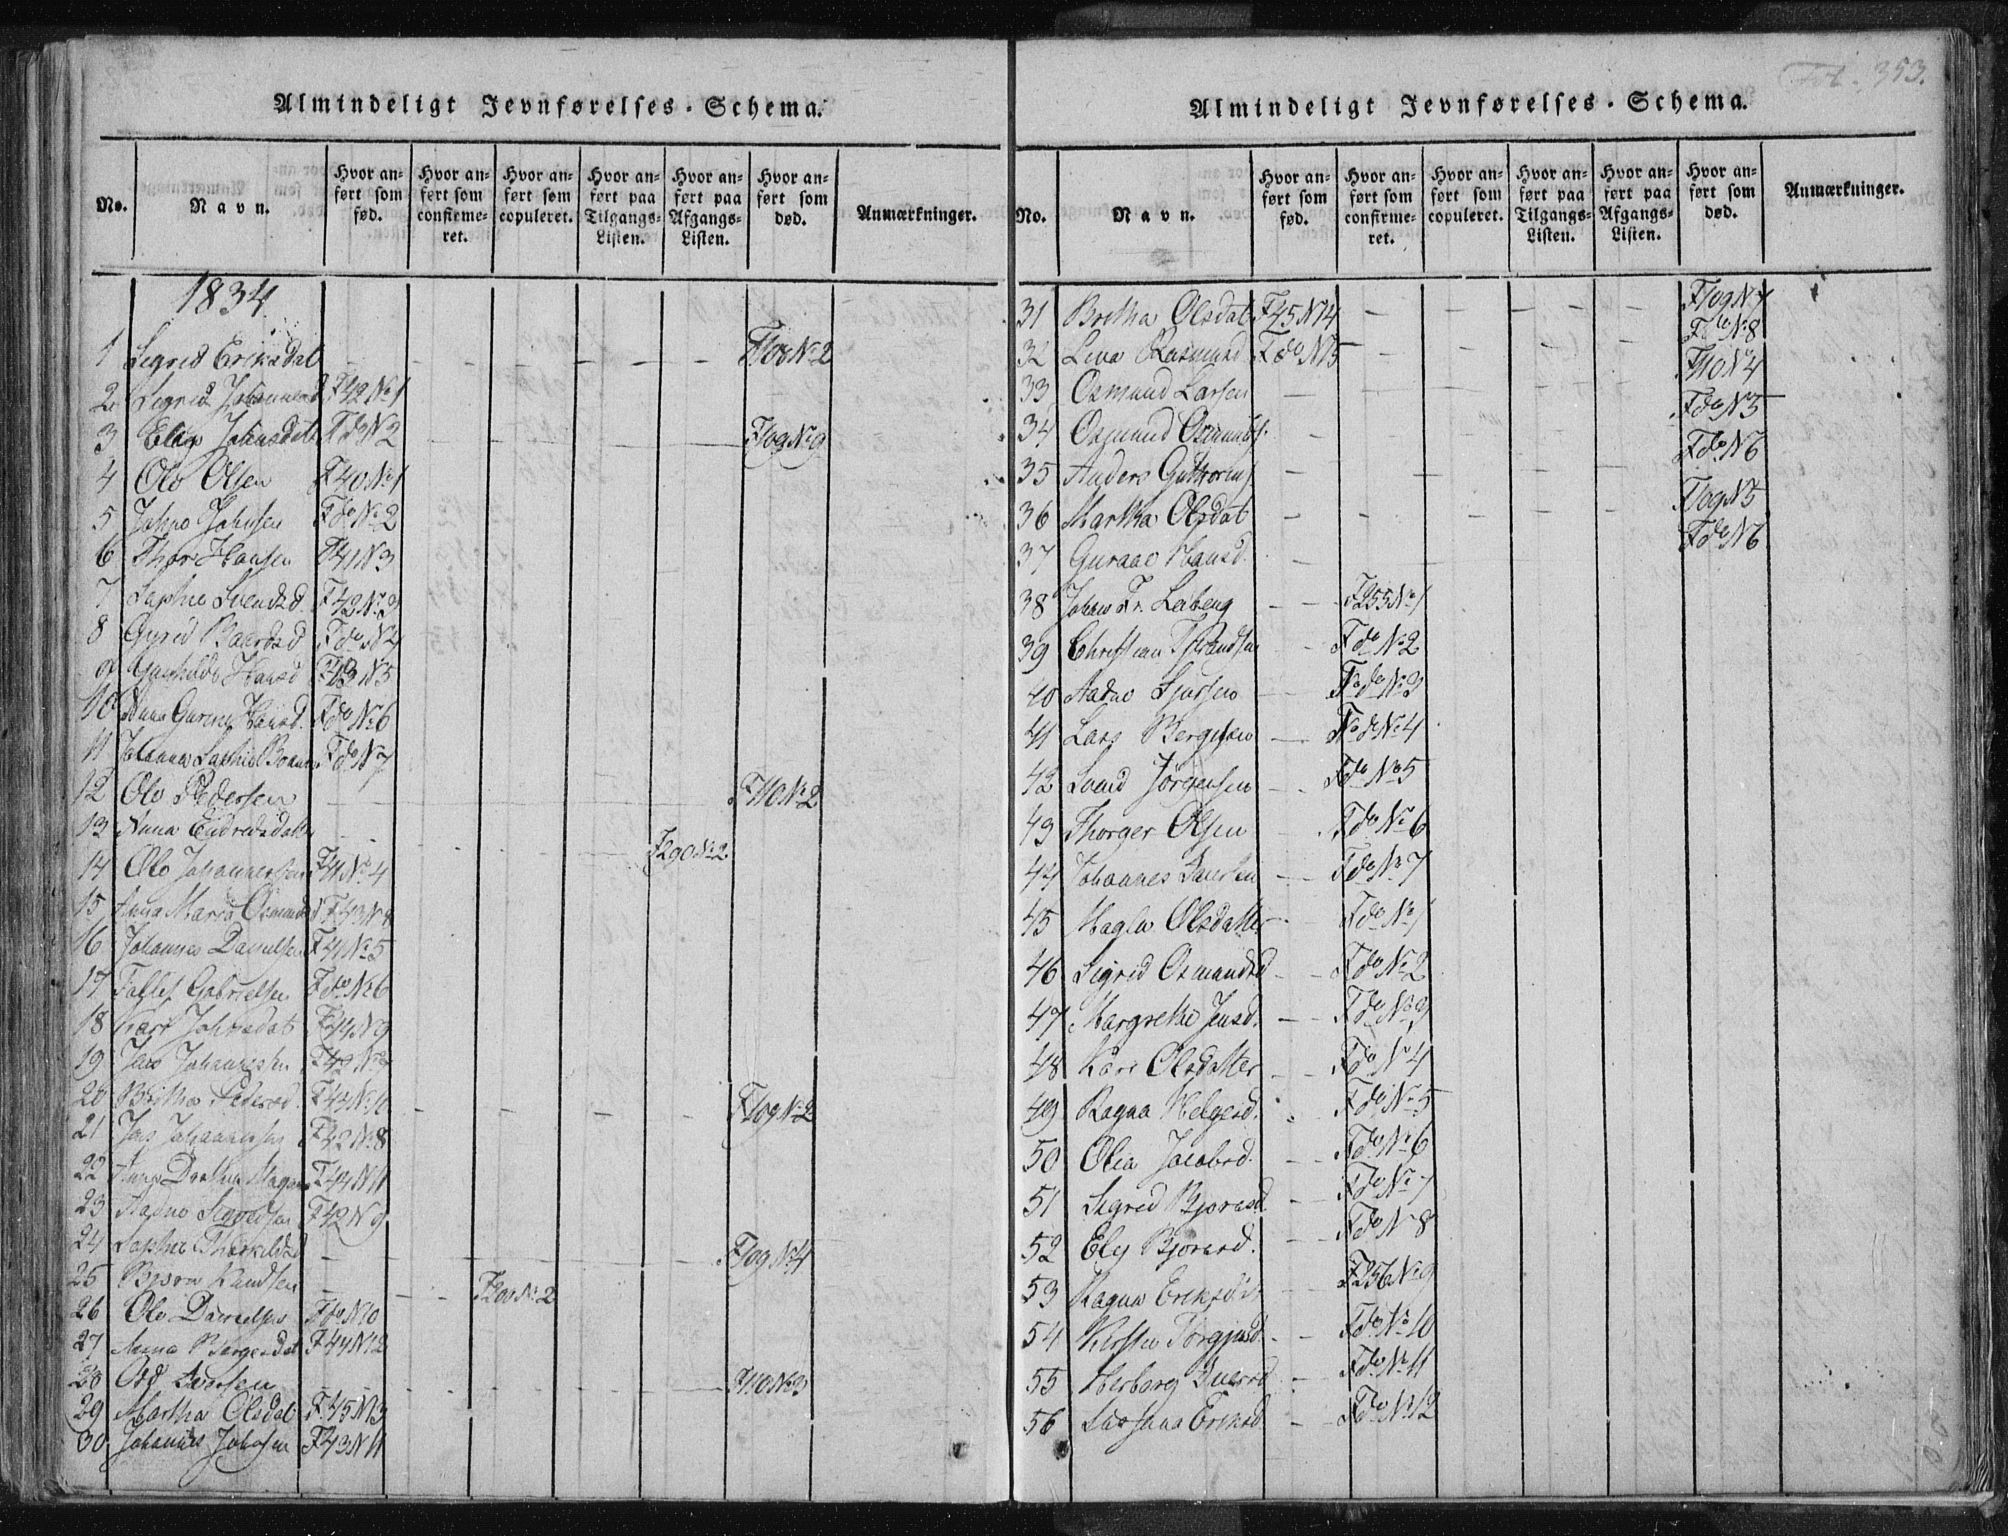 Almindeligt Jevnførelses-Schema.
No. Navn. Hvor anført som fød. Hvor anført som confirmeret. Hvor anført som copuleret. Hvor anført paa Tilgangs-Listen. Hvor anført paa Afgangs-Listen. Hvor anført som død. Anmærkninger.
1834
1 Sigrid Eriksdat F108 No 2
2 Sigrid F42 No 1
3 Johnsdat F do N 2 F109 No 9
4 Olo Olsen F40 No 1
5 Johnsen F do No 2
6 Thor Hansen F41 N 3
7 Sophie Svendsd F42 No 3
8 Gyrid Baardsd F do N 4
9 Gunhilde Hansd F43 N 5
10 Anna Hansd. F do No 6
11 Johanna F do N 7
12 Olo Pedersen F110 No 2
13 Anna Endredsdatter F290 No 2
14 Olo Johannessen F41 No 4
15 Anna Maria Osmundsd F43 N 8
16 Johannes Danielsen F41 No 5
17 Tollef Gabrielsen F do No 6
18 Kari Johnsdat F44 N 9
19 Jens Johannessen F42 No 7
20 Britha Pedersd F44 No 10 F109 No 2
21 Johannessen F42 No 8
22 Anna Dorthea F44 N 11
23 Aadne F42 N 9
24 Sophie Thorkildsd F109 No 4
25 Bjorn Knudsen F200 No 2
26 Olo Danielsen F do N 10
27 Anna Borgesdat F44 N 12
28 Odd Ivarsen F110 No 3
29 Martha Olsdat F45 N 13
30 Johannes Johnsen F43 N 11
Fol. 353.
Almindeligt Jevnførelses-Schema.
No. Navn. Hvor anført som fød. Hvor anført som confirmeret. Hvor anført som copuleret. Hvor anført paa Tilgangs-Listen. Hvor anført paa Afgangs-Listen. Hvor anført som død. Anmærkninger.
31 Britha Olsdat F45 N 14 F109 N 7
32 Lena Rasmusd F do N 15 F do No 8
33 Osmund Larsen F110 N 4
34 Osmund Osmunds. F do N 5
35 Anders Guthorms F do N 6
36 Martha Olsdat F109 N 5
37 Guraae Hansd F do N 6
38 Johan Fr. F255 No 1
39 Christian F do No 2
40 Aadne Sjursen F do No 3
41 Lars Bergesen F do No 4
42 Svend Jörgensen F do No 5
43 Thorger Olsen F do No 6
44 Johannes Iversen F do No 7
45 Magla Olsdatter F do No 1
46 Sigrid Osmundsd F do No 2
47 Margrethe Jensd. F do No 3
48 Kari Olsdatter F do No 4
49 Ragna Helgesd. F do No 5
50 Olia Jacobsd. F do No 6
51 Sigrid Bjornsd. F do No 7
52 Ely Bjornsd. F do N 8
53 Ragna Eriksd F256 No 9
54 Kirsten Torgjusd. F do No 10
55 Herborg Iversd F do No 11
56 Susanna Eriksd. F do No 12